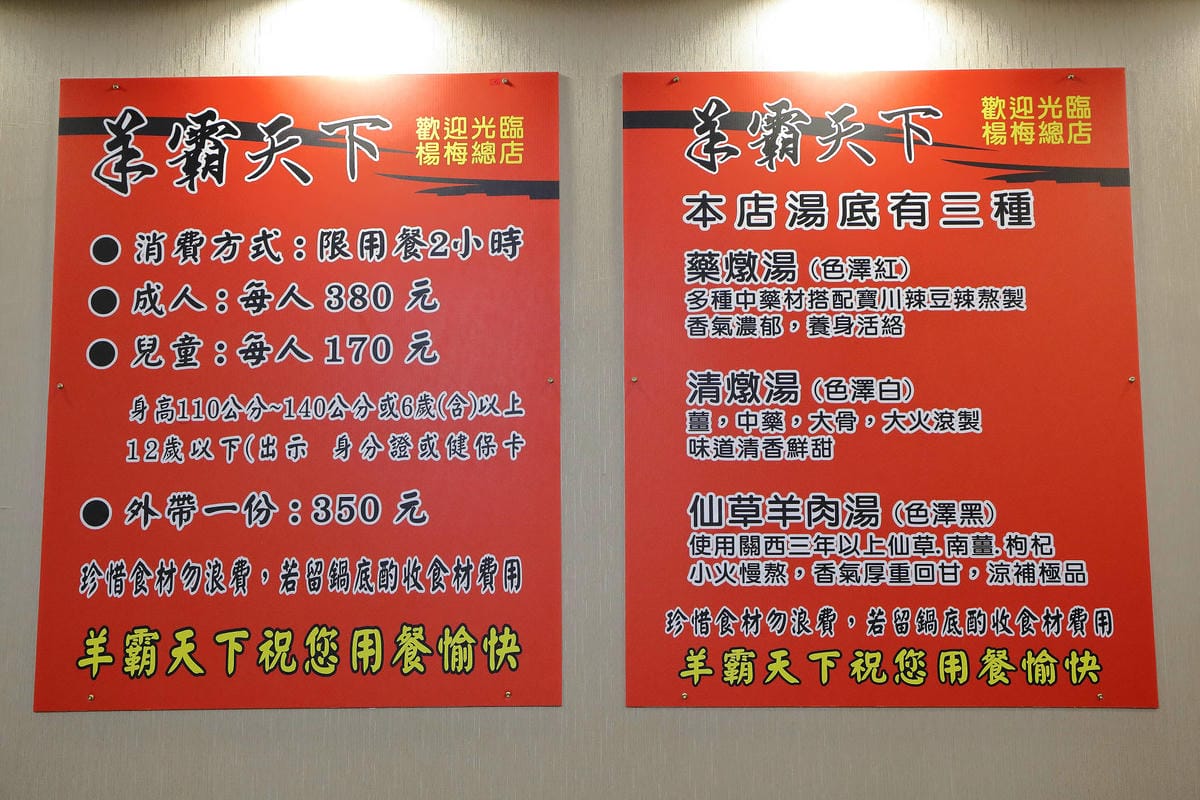 羊霸天下
歡迎光臨
楊梅總店
●消費方式：限用餐2小時
●成人：每人 380 元
●兒童：每人 170 元
身高110公分~140公分或6歲(含)以上
12歲以下(出示 身分證或健保卡
●外帶一份：350 元
珍惜食材勿浪費，若留鍋底酌收食材費用
羊霸天下祝您用餐愉快
羊霸天下
歡迎光臨
楊梅總店
本店湯底有三種
藥燉湯（色澤紅）
多種中藥材搭配寶川辣豆辣熬製
香氣濃郁，養身活絡
清燉湯（色澤白）
薑，中藥，大骨，大火滾製
味道清香鮮甜
仙草羊肉湯（色澤黑）
使用關西三年以上仙草.南薑.枸杞
小火慢熬，香氣厚重回甘，涼補極品
珍惜食材勿浪費，若留鍋底酌收食材費用
羊霸天下祝您用餐愉快